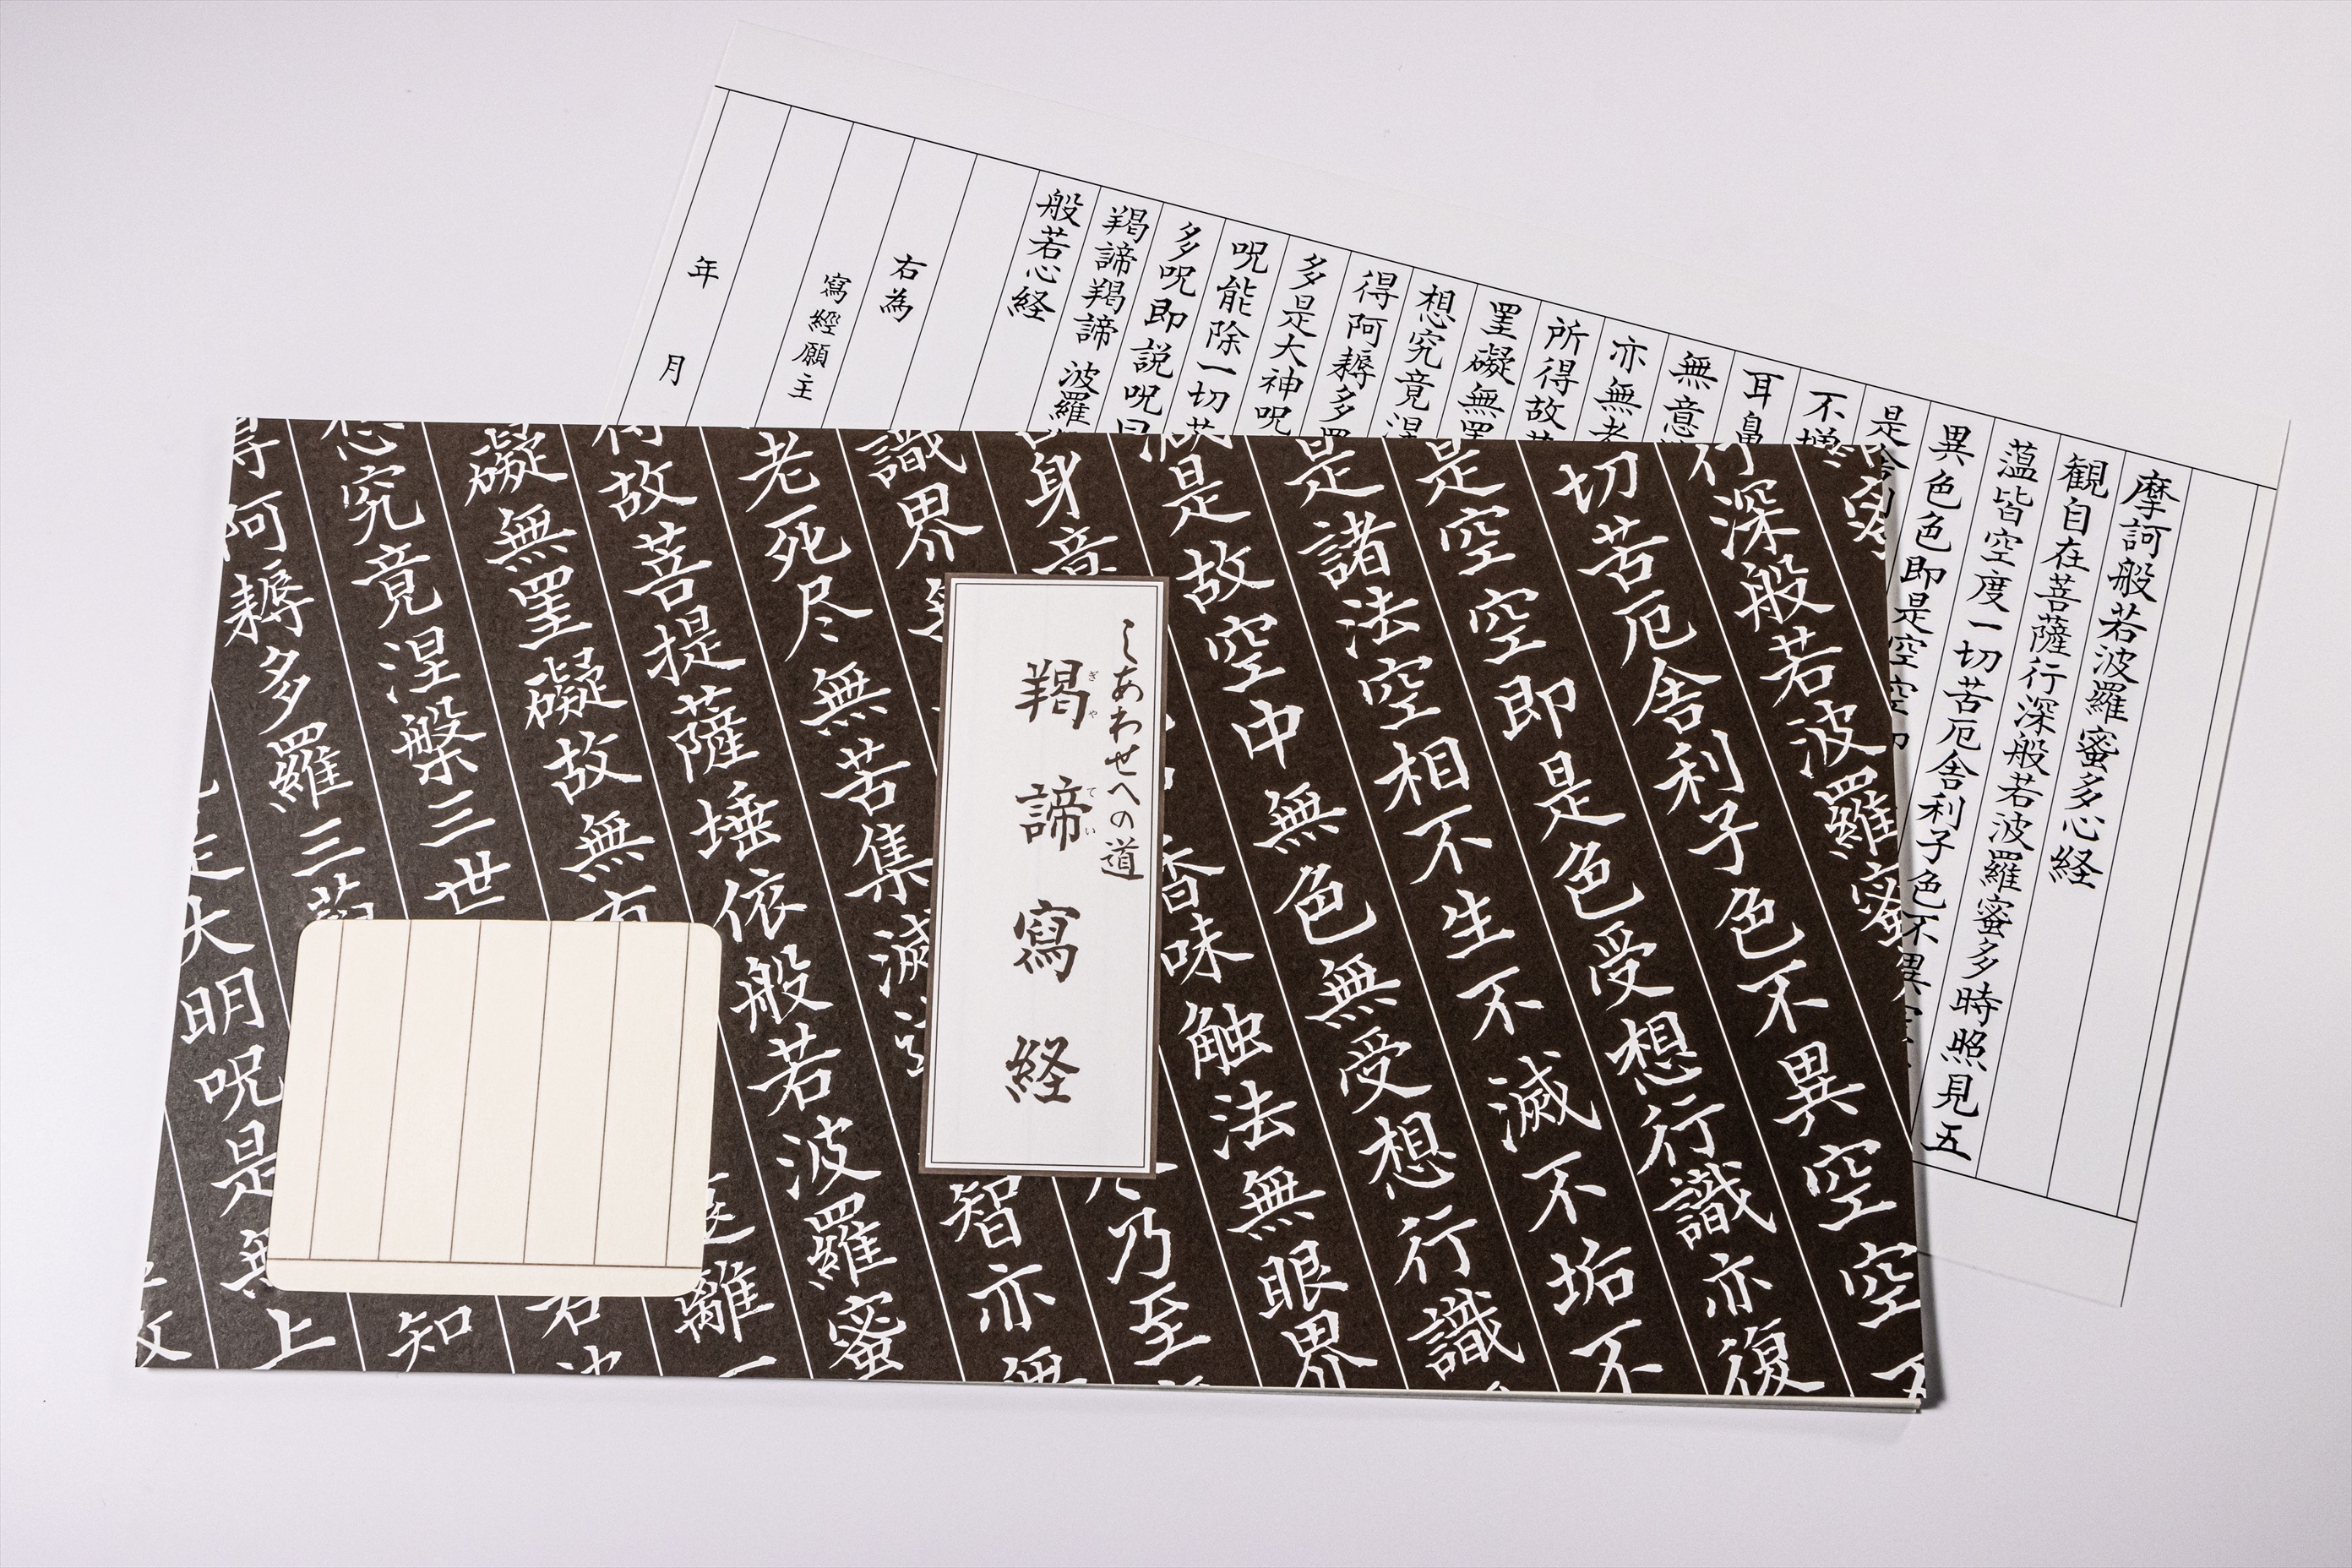 摩訶般若波羅蜜多心経
観自在菩薩行深般若波羅蜜多時照見五
蘊皆空度一切苦厄舎利子色不異
異色色即是空空
是舎利
不増
耳鼻
無意
亦無老
所得故
罣礙無罣
想究竟涅
得阿耨多羅
多是大神呪
呪能除一切苦
多呪即説呪曰
羯諦羯諦 波羅
般若心経
右為
寫經願主
年 月
しあわせへの道
羯諦寫経
ぎゃ てい
行深般若波羅蜜
切苦厄舎利子色不異空空不
是空空即是色受想行識亦復
是諸法空相不生不滅不垢不
減是故空中無色無受想行識
身意
香味触法無眼界
識界無
尽乃至
老死尽無苦集滅道
智亦無
得故菩提薩埵依般若波羅蜜
礙無罣礙故無有
遠離一
想究竟涅槃三世
若波
得阿耨多羅三藐
知
是大明呪是無上
故